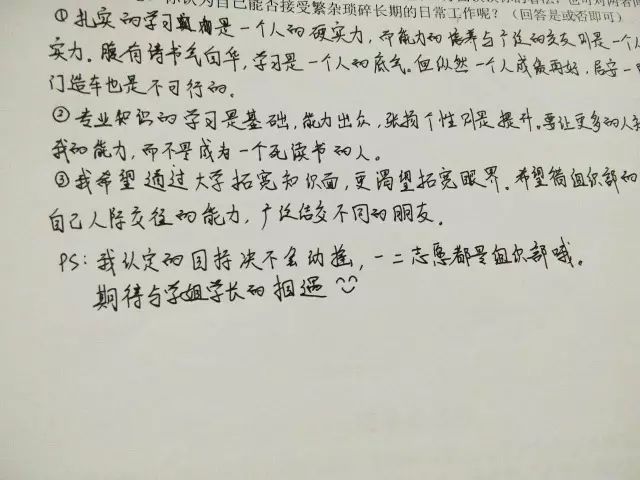 你认为自己能否接受繁杂琐碎长期的日常工作呢？（回答是或否即可）
①扎实的学习 是一个人的硬实力，而能力的培养与广泛的交友则是一个人
实力。腹有诗书气自华，学习是一个人的底气。但纵然一个人成绩再好，居安一
门造车也是不可行的。
②专业知识的学习是基础，能力出众，张扬个性则是提升。要让更多的人
我的能力，而不是成为一个死读书的人。
③我希望通过大学拓宽知识面，更渴望拓宽眼界。希望 组织部的
自己人际交往的能力，广泛结交不同的朋友。
PS：我认定的目标决不会动摇，一二志愿都是组织部哦。
期待与学姐学长的相遇